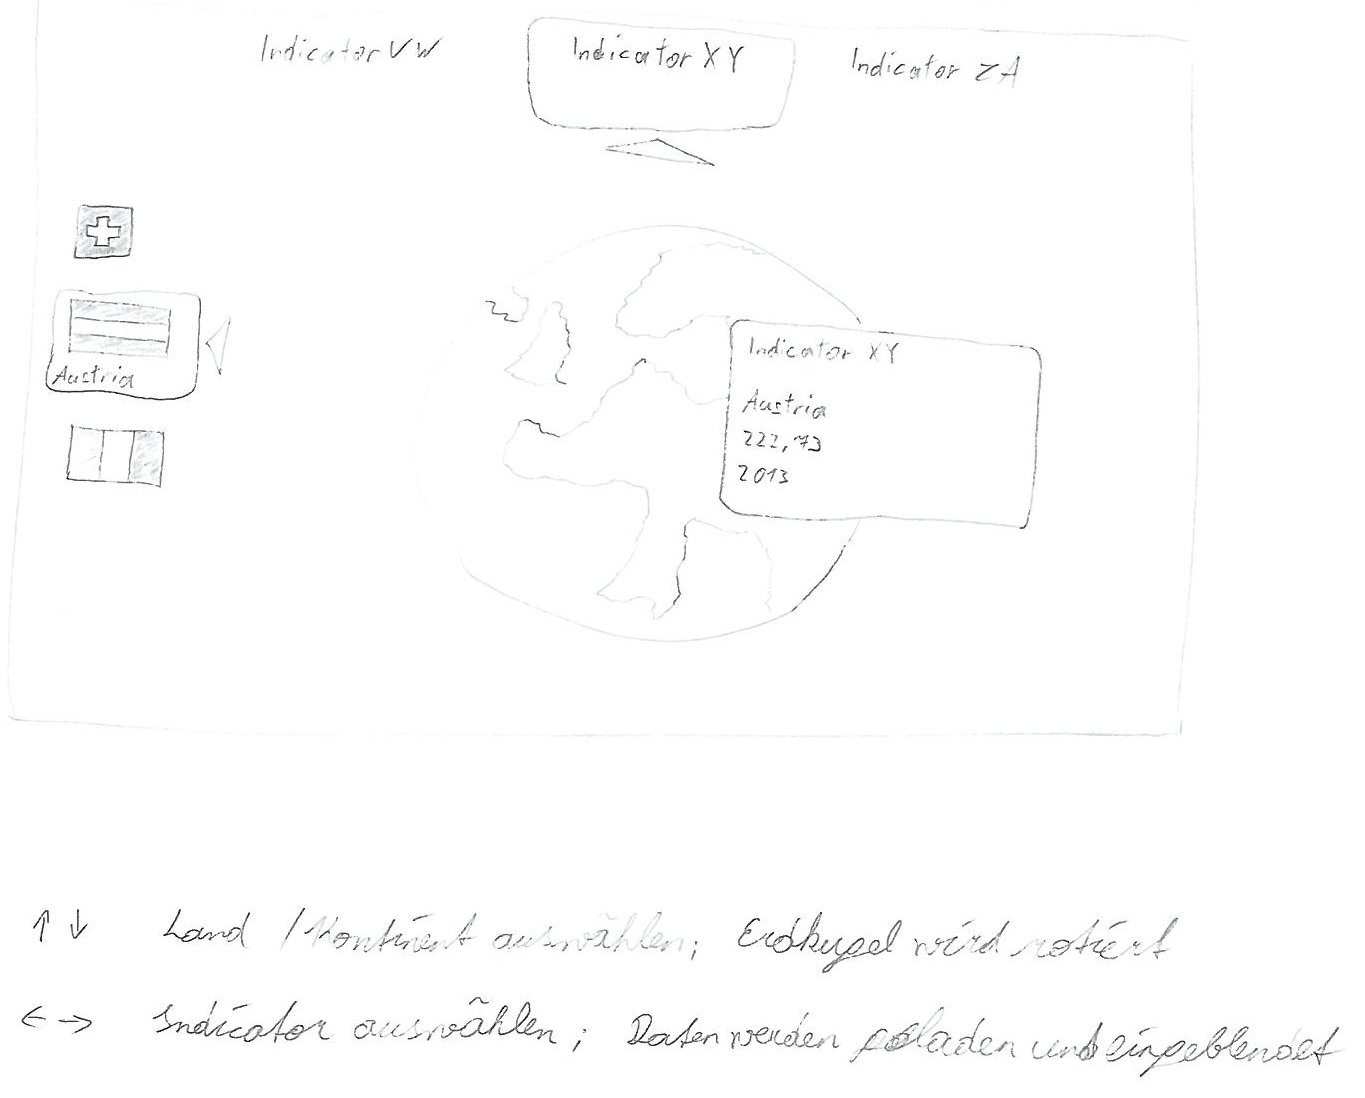 Indicator VW
Indicator XY
Indicator ZA
Austria
Indicator XY
Austria
222,73
2013
↑ ↓ Land / Kontinent auswählen; Erdkugel wird rotiert
← → Indicator auswählen; Daten werden geladen und eingeblendet